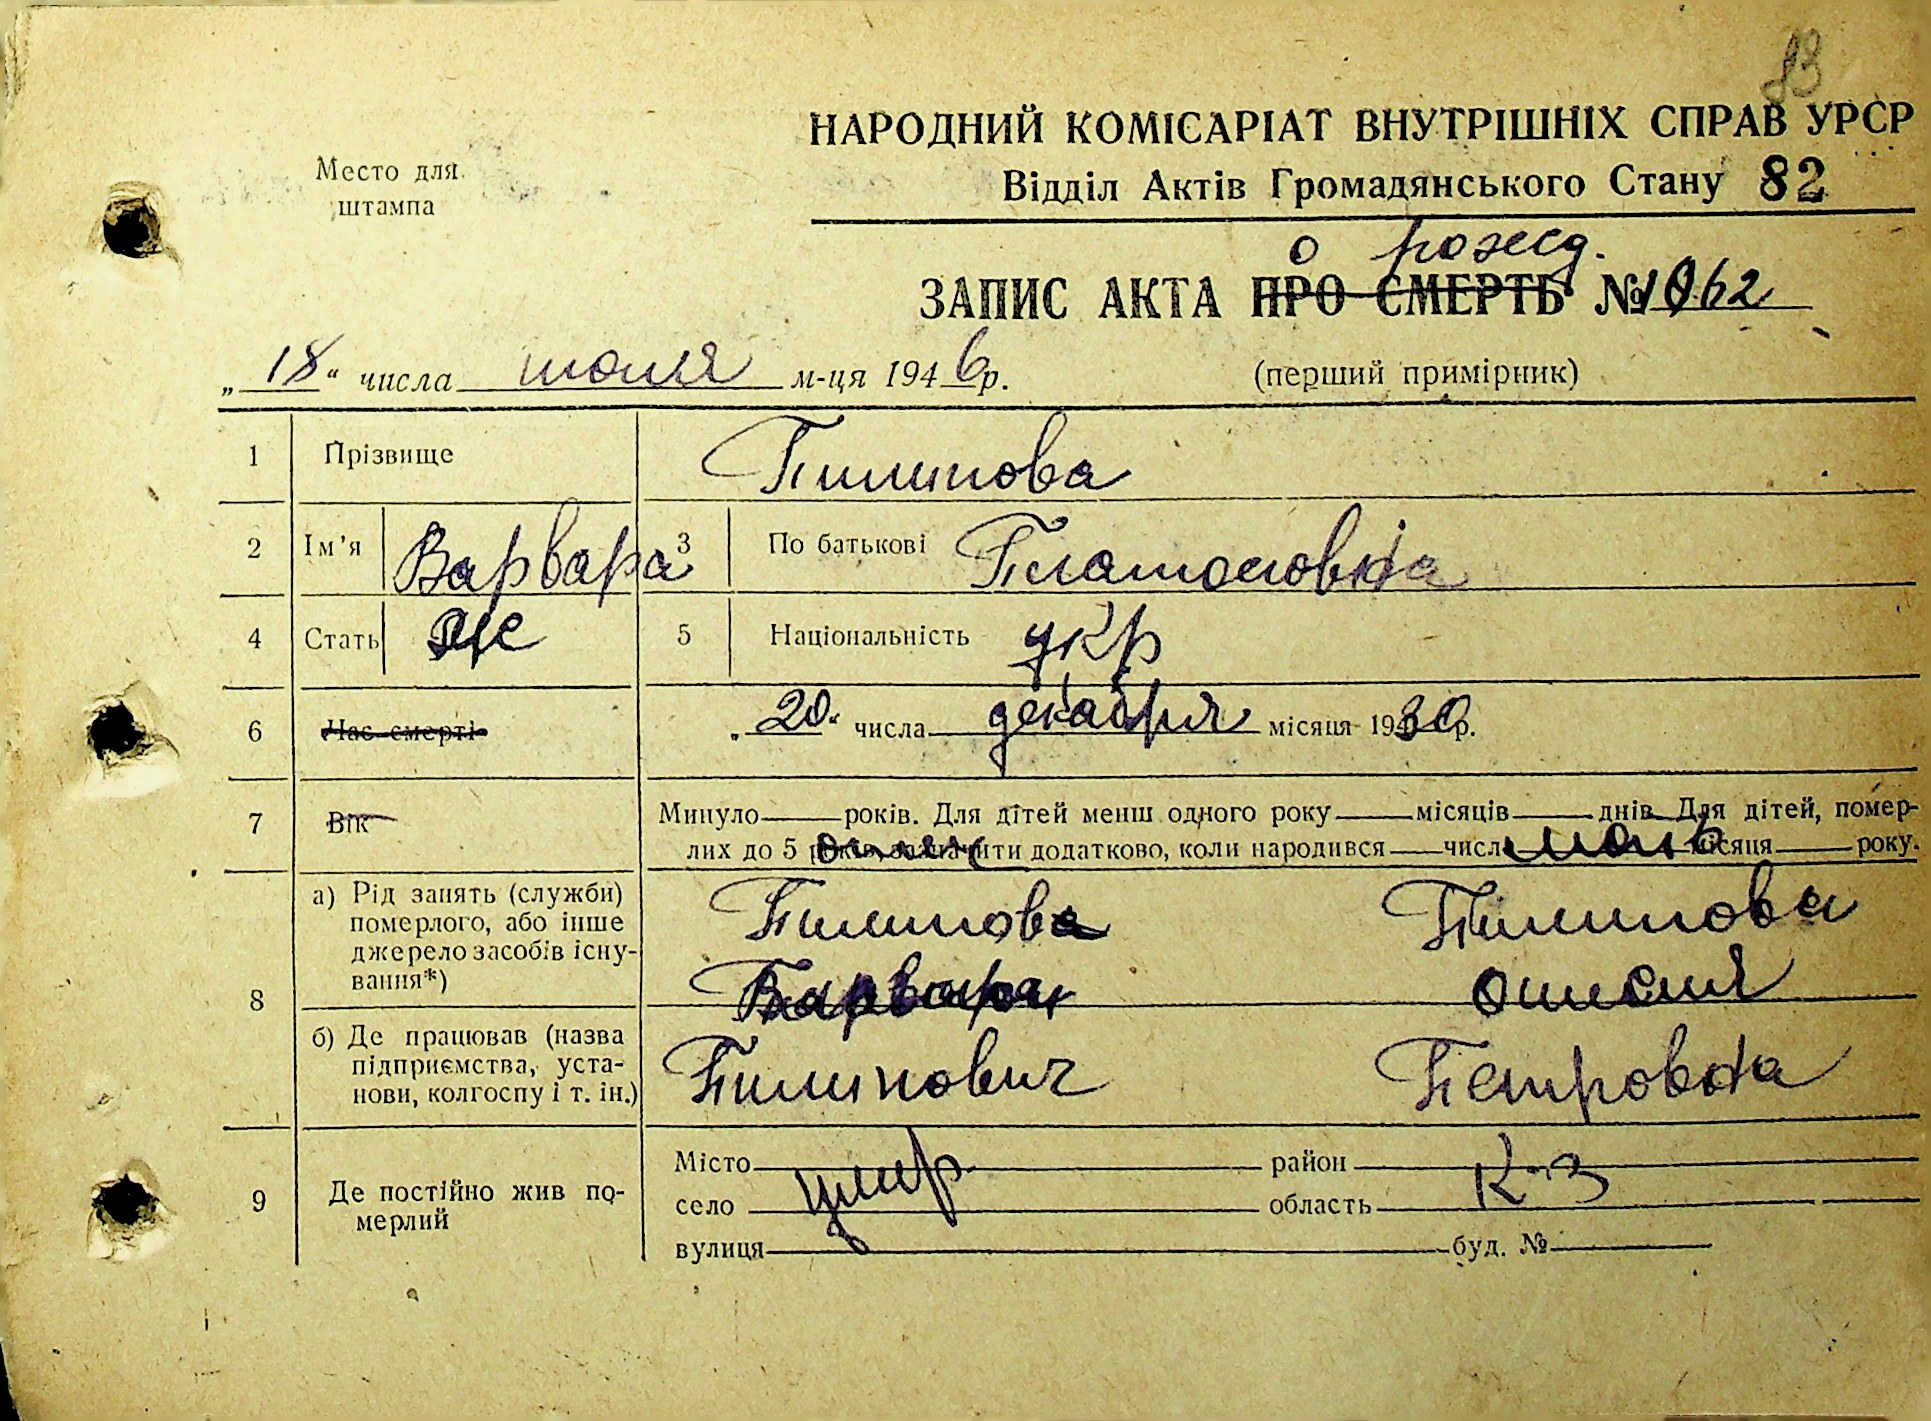 83
НАРОДНИЙ КОМІСАРІАТ ВНУТРІШНІХ СПРАВ УРСР
Место для штампа
Відділ Актів Громадянського Стану 82
о рожд.
ЗАПИС АКТА ПРО СМЕРТЬ № 1062
„18“ числа июля м-ця 1946 р.
(перший примірник)
1 Прізвище Пилипова
2 Ім'я Варвара 3 По батькові Платоновна
4 Стать Ж 5 Національність укр
6 Час смерті „20“ числа декабря місяця 1930 р.
7 Вік Минуло років. Для дітей менш одного року місяців днів. Для дітей, помер-
лих до 5 років, зазначити додатково, коли народився числа місяця року.
отец мать
8 а) Рід занять (служби)
померлого, або інше
джерело засобів існу-
вання*)
б) Де працював (назва
підприємства, уста-
нови, колгоспу і т. ін.)
Пилипова Пилипова
Варвара
Пилипович Петровна
9 Де постійно жив по-
мерлий
Місто район
село область К-З
вулиця буд. №